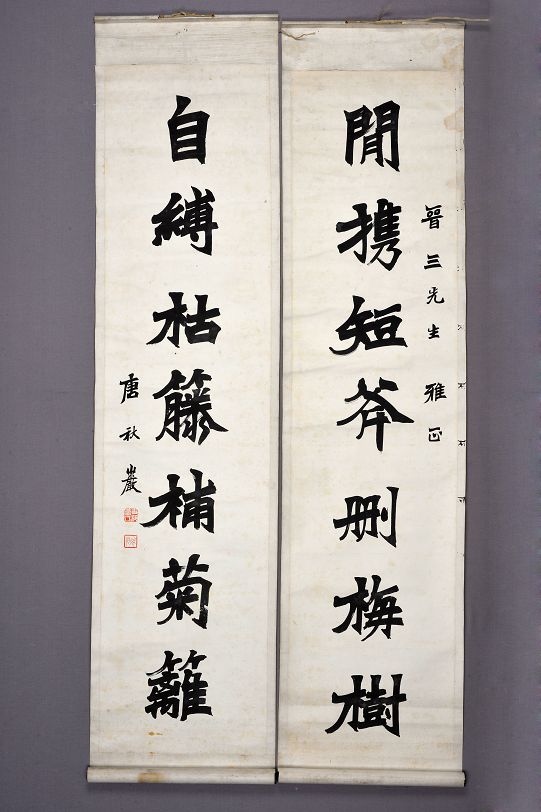 晉三先生 雅正
閒携短斧刪梅樹
自縛枯籐補菊籬
唐秋巖